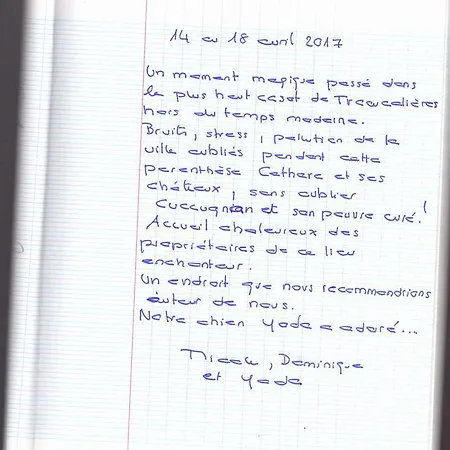 14 au 18 avril 2017
Un moment magique passé dans
le plus haut casot de Trevillach
hors du temps moderne.
Bruits, stress, pollution de la
ville oubliés pendant cette
parenthèse Cathare et ses
châteaux, sans oublier
Cucugnan et son pauvre curé !
Accueil chaleureux des
propriétaires de ce lieu
enchanteur.
Un endroit que nous recommandrions
autour de nous.
Notre chien Yoda a adoré...
Nicole, Dominique
et Yoda